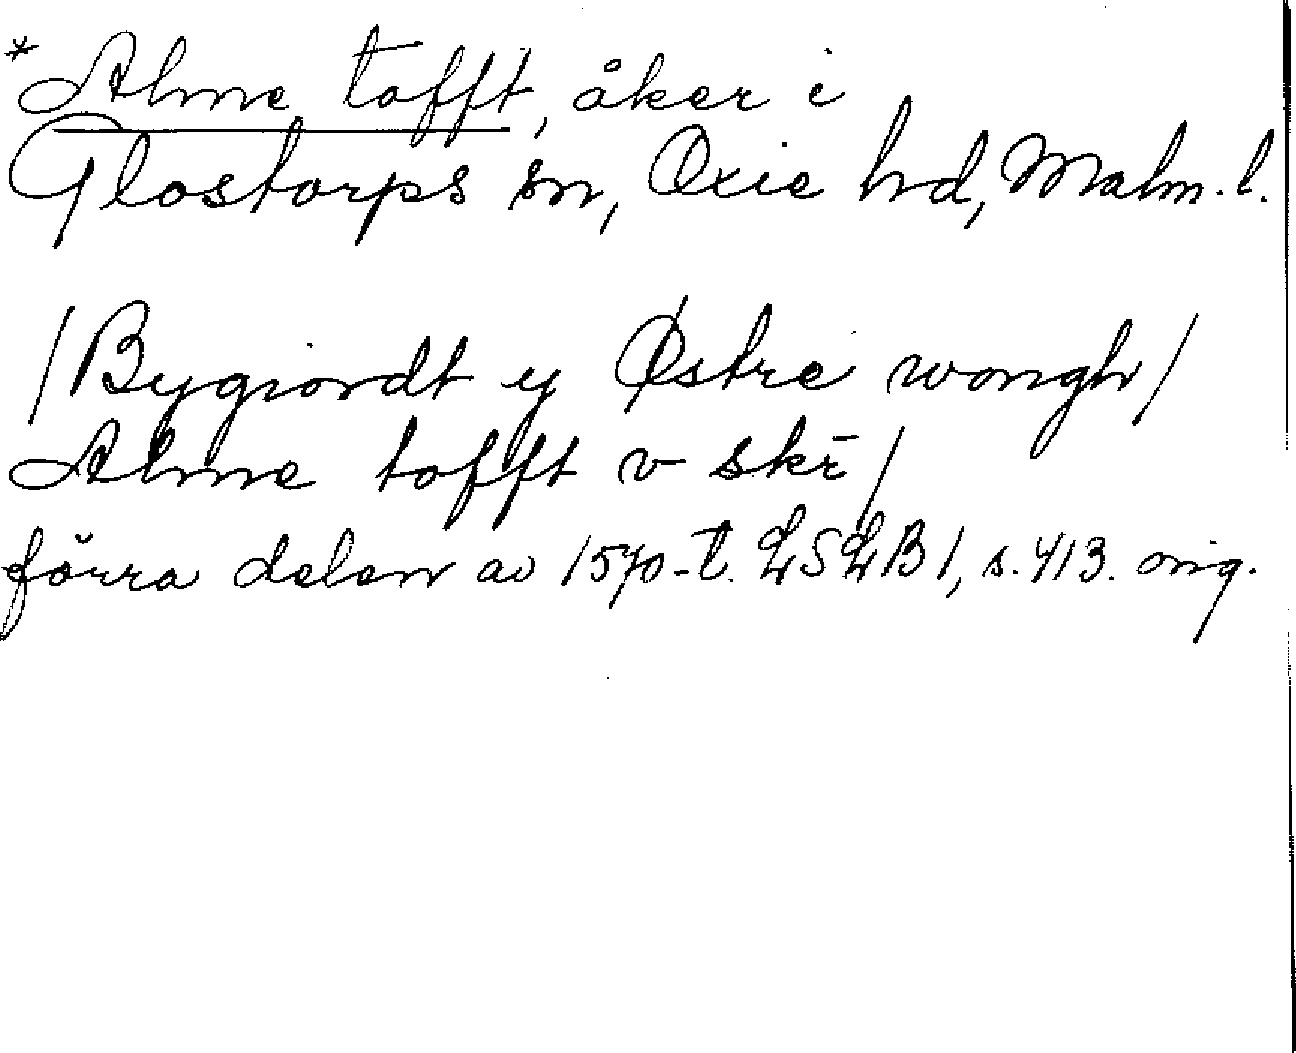 *Alme tofft, åker i
Glostorps sn, Oxie hd, Malm. l.
/Bygiordt y Østre wongh/
Alme tofft v skē/
förra delen av 1570-t. LSLB 1, s. 413. orig.